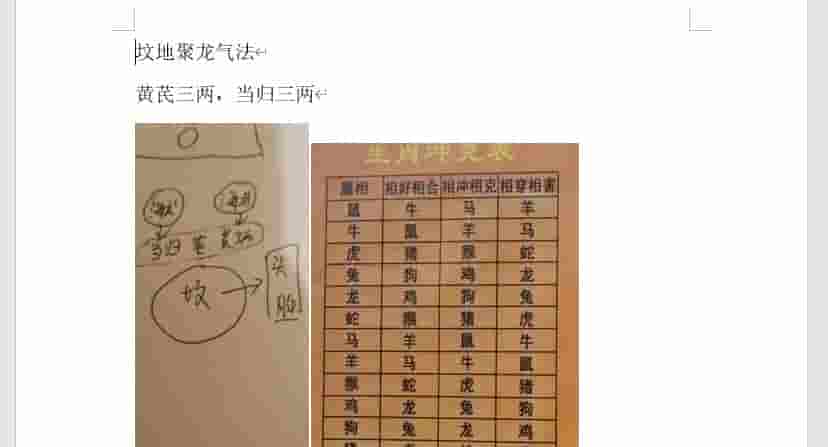 坟地聚龙气法
黄芪三两，当归三两
当归
坟
头
生肖冲克表
属相 相好相合 相冲相克 相穿相害
鼠 牛 马 羊
牛 鼠 羊 马
虎 猪 猴 蛇
兔 狗 鸡 龙
龙 鸡 狗 兔
蛇 猴 猪 虎
马 羊 鼠 牛
羊 马 牛 鼠
猴 蛇 虎 猪
鸡 龙 兔 狗
狗 兔 龙 鸡